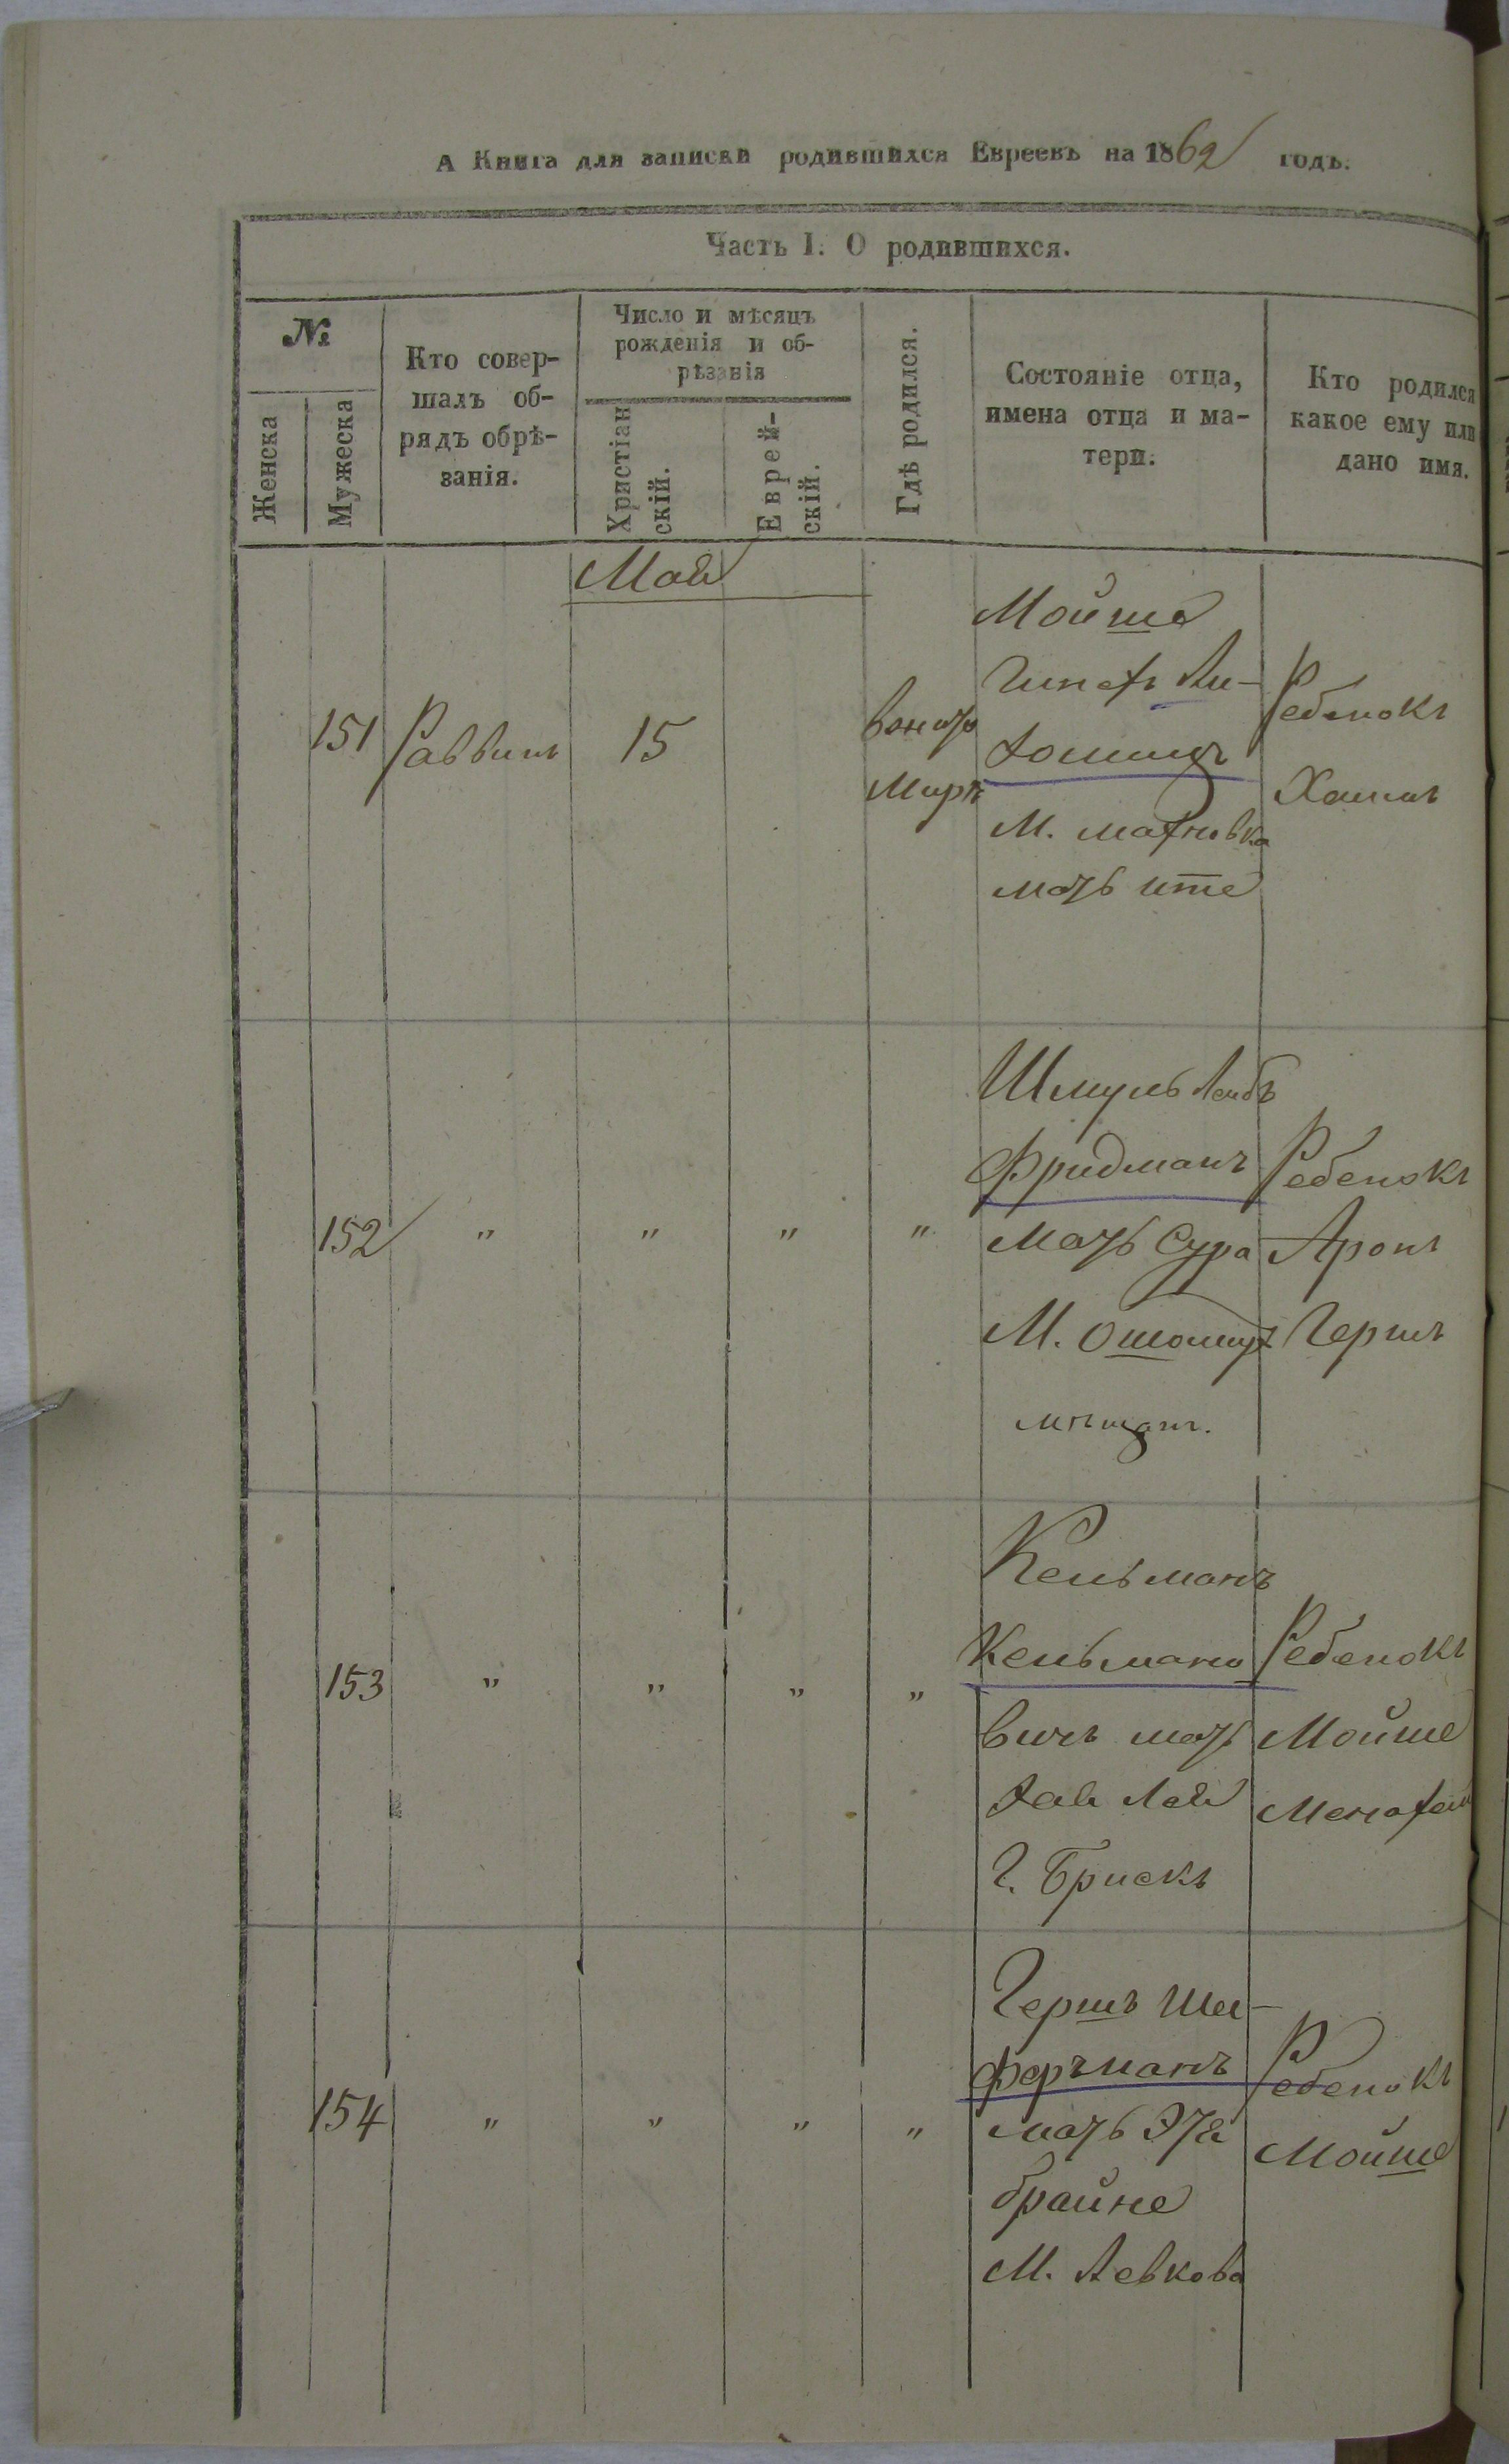 А Книга для записки родившихся Евреевъ на 1862 годъ.
Часть I. О родившихся.
№
Женска
Мужеска
Кто совер-
шалъ об-
рядъ обрѣ-
занія.
Число и мѣсяцъ
рожденія и об-
рѣзанія
Христіан
скій.
Еврей-
скій.
Гдѣ родился.
Состояніе отца,
имена отца и ма-
тери.
Кто родился
какое ему или
дано имя.
Май
151
Раввинъ
15
Мойше
М. Махновка
мать ите
Ребенокъ
152
"
"
"
"
Шмуль Лейбъ
Фридманъ
мать Сура
М.
мѣщан.
Ребенокъ
Аронъ
Гершъ
153
"
"
"
"
Кельманъ
Кельмано
вичъ мать
Хая Лея
Г. Брискъ
Ребенокъ
Мойше
154
"
"
"
"
Гершъ Ше-
мать
брайне
М. Левкова
Ребенокъ
Мойше